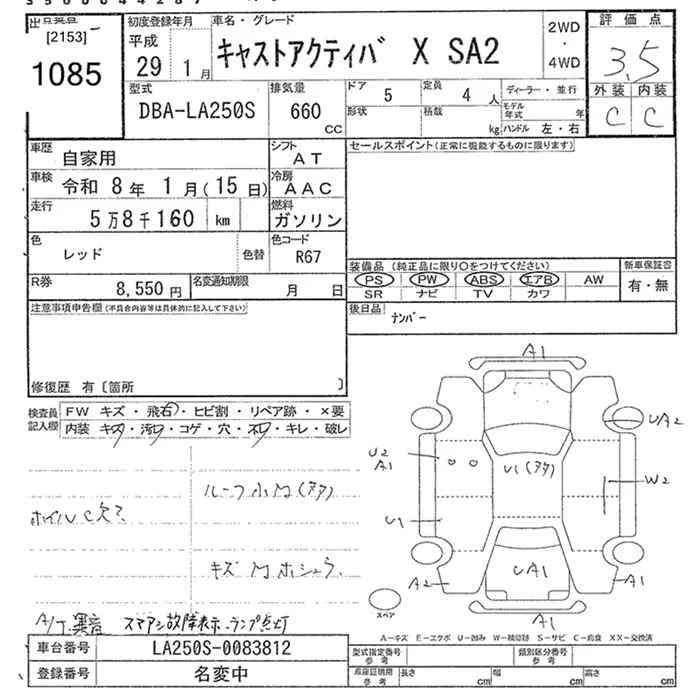 [2153]
1085
初度登録年月
平成
29 1月
車名・グレード
キャストアクティバ X SA2
2WD
・
4WD
評価点
3.5
外装 内装
C C
型式
DBA-LA250S
排気量
660
CC
ドア
5
定員
4 人
形状
積載
kg
ディーラー・並行
モデル
年式 年
ハンドル 左・右
車歴
自家用
シフト
AT
車検
令和 8年 1月(15日)
冷房
AAC
走行
5万8千160 km
燃料
ガソリン
色
レッド
色替
色コード
R67
R券
8,550円
名変通知期限
月 日
セールスポイント(正常に機能するものに限ります)
装備品 (純正品に限り○をつけてください)
PS PW ABS エアB AW
SR ナビ TV カワ
新車保証書
有・無
後日品
ナンバー
注意事項申告欄(不具合内容等は具体的に記入して下さい)
修復歴 有〔箇所 〕
検査員
記入欄
FW キズ・飛石・ヒビ割・リペア跡・×要
内装 キズ・汚レ・コゲ・穴・ネジ・キレ・破レ
ホイルC欠?
キズ
A/T 異音
スマアシ故障表示 ランプ点灯
A1
UA2
U2
A1
U1
W2
U1
UA1
A2
A1
A1
スペア
A-キズ E-エクボ U-凹み W-補修跡 S-サビ C-腐食 XX-交換済
車台番号
LA250S-0083812
登録番号
名変中
型式指定番号
参考
類別区分番号
参考
車庫証明用
参考
長さ cm
幅 cm
高さ cm